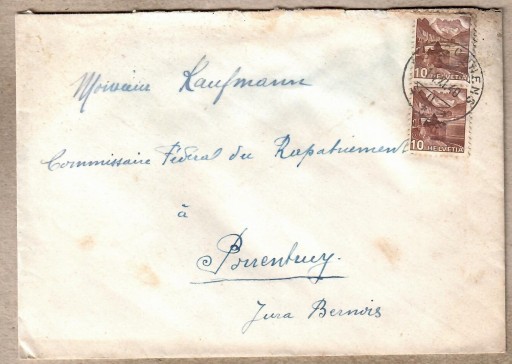 Monsieur Kaufmann
Commissaire Fédéral du Rapatriement
à
Porrentruy.
Jura Bernois
10 HELVETIA
10 HELVETIA